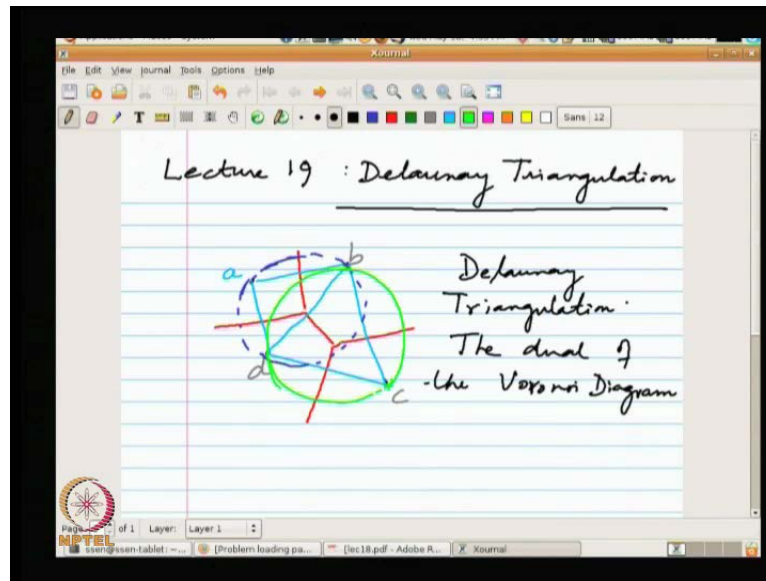 Xournal
File Edit View Journal Tools Options Help
Sans 12
Lecture 19 : Delaunay Triangulation
a
b
d
c
Delaunay
Triangulation.
The dual of
the Voronoi Diagram
of 1 Layer: Layer 1
NPTEL
ssen@ssen-tablet: ~... [Problem loading pa... [lec18.pdf - Adobe R... Xournal